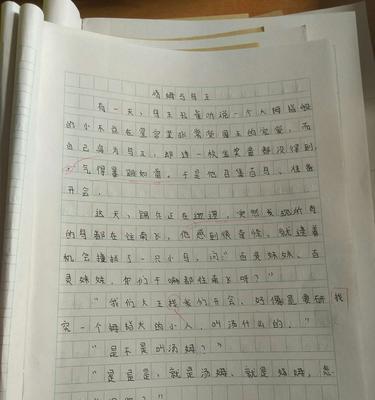 汤姆与鸟王
有一天，鸟王孔雀听说一个人拇指般
的小不点在皇宫里非常受国王的宠爱，而
自己身为鸟王，却连一枚生奖章都没得到，
气得暴跳如雷。于是他召集百鸟，准备
开会。
这天，汤姆正在, 突然发现所有
的鸟都在往南飞，他感到很奇怪。就逢着
机会撞橫了一只小鸟，问“百灵妹妹、百
灵妹妹，你们干嘛都往南飞呀？”
“我们大王找我们开会，好像是要研
究一个拇指大的小人，叫汤什么的。”
“是不是叫汤姆？”
“是是是，就是汤姆，就是汤姆，您